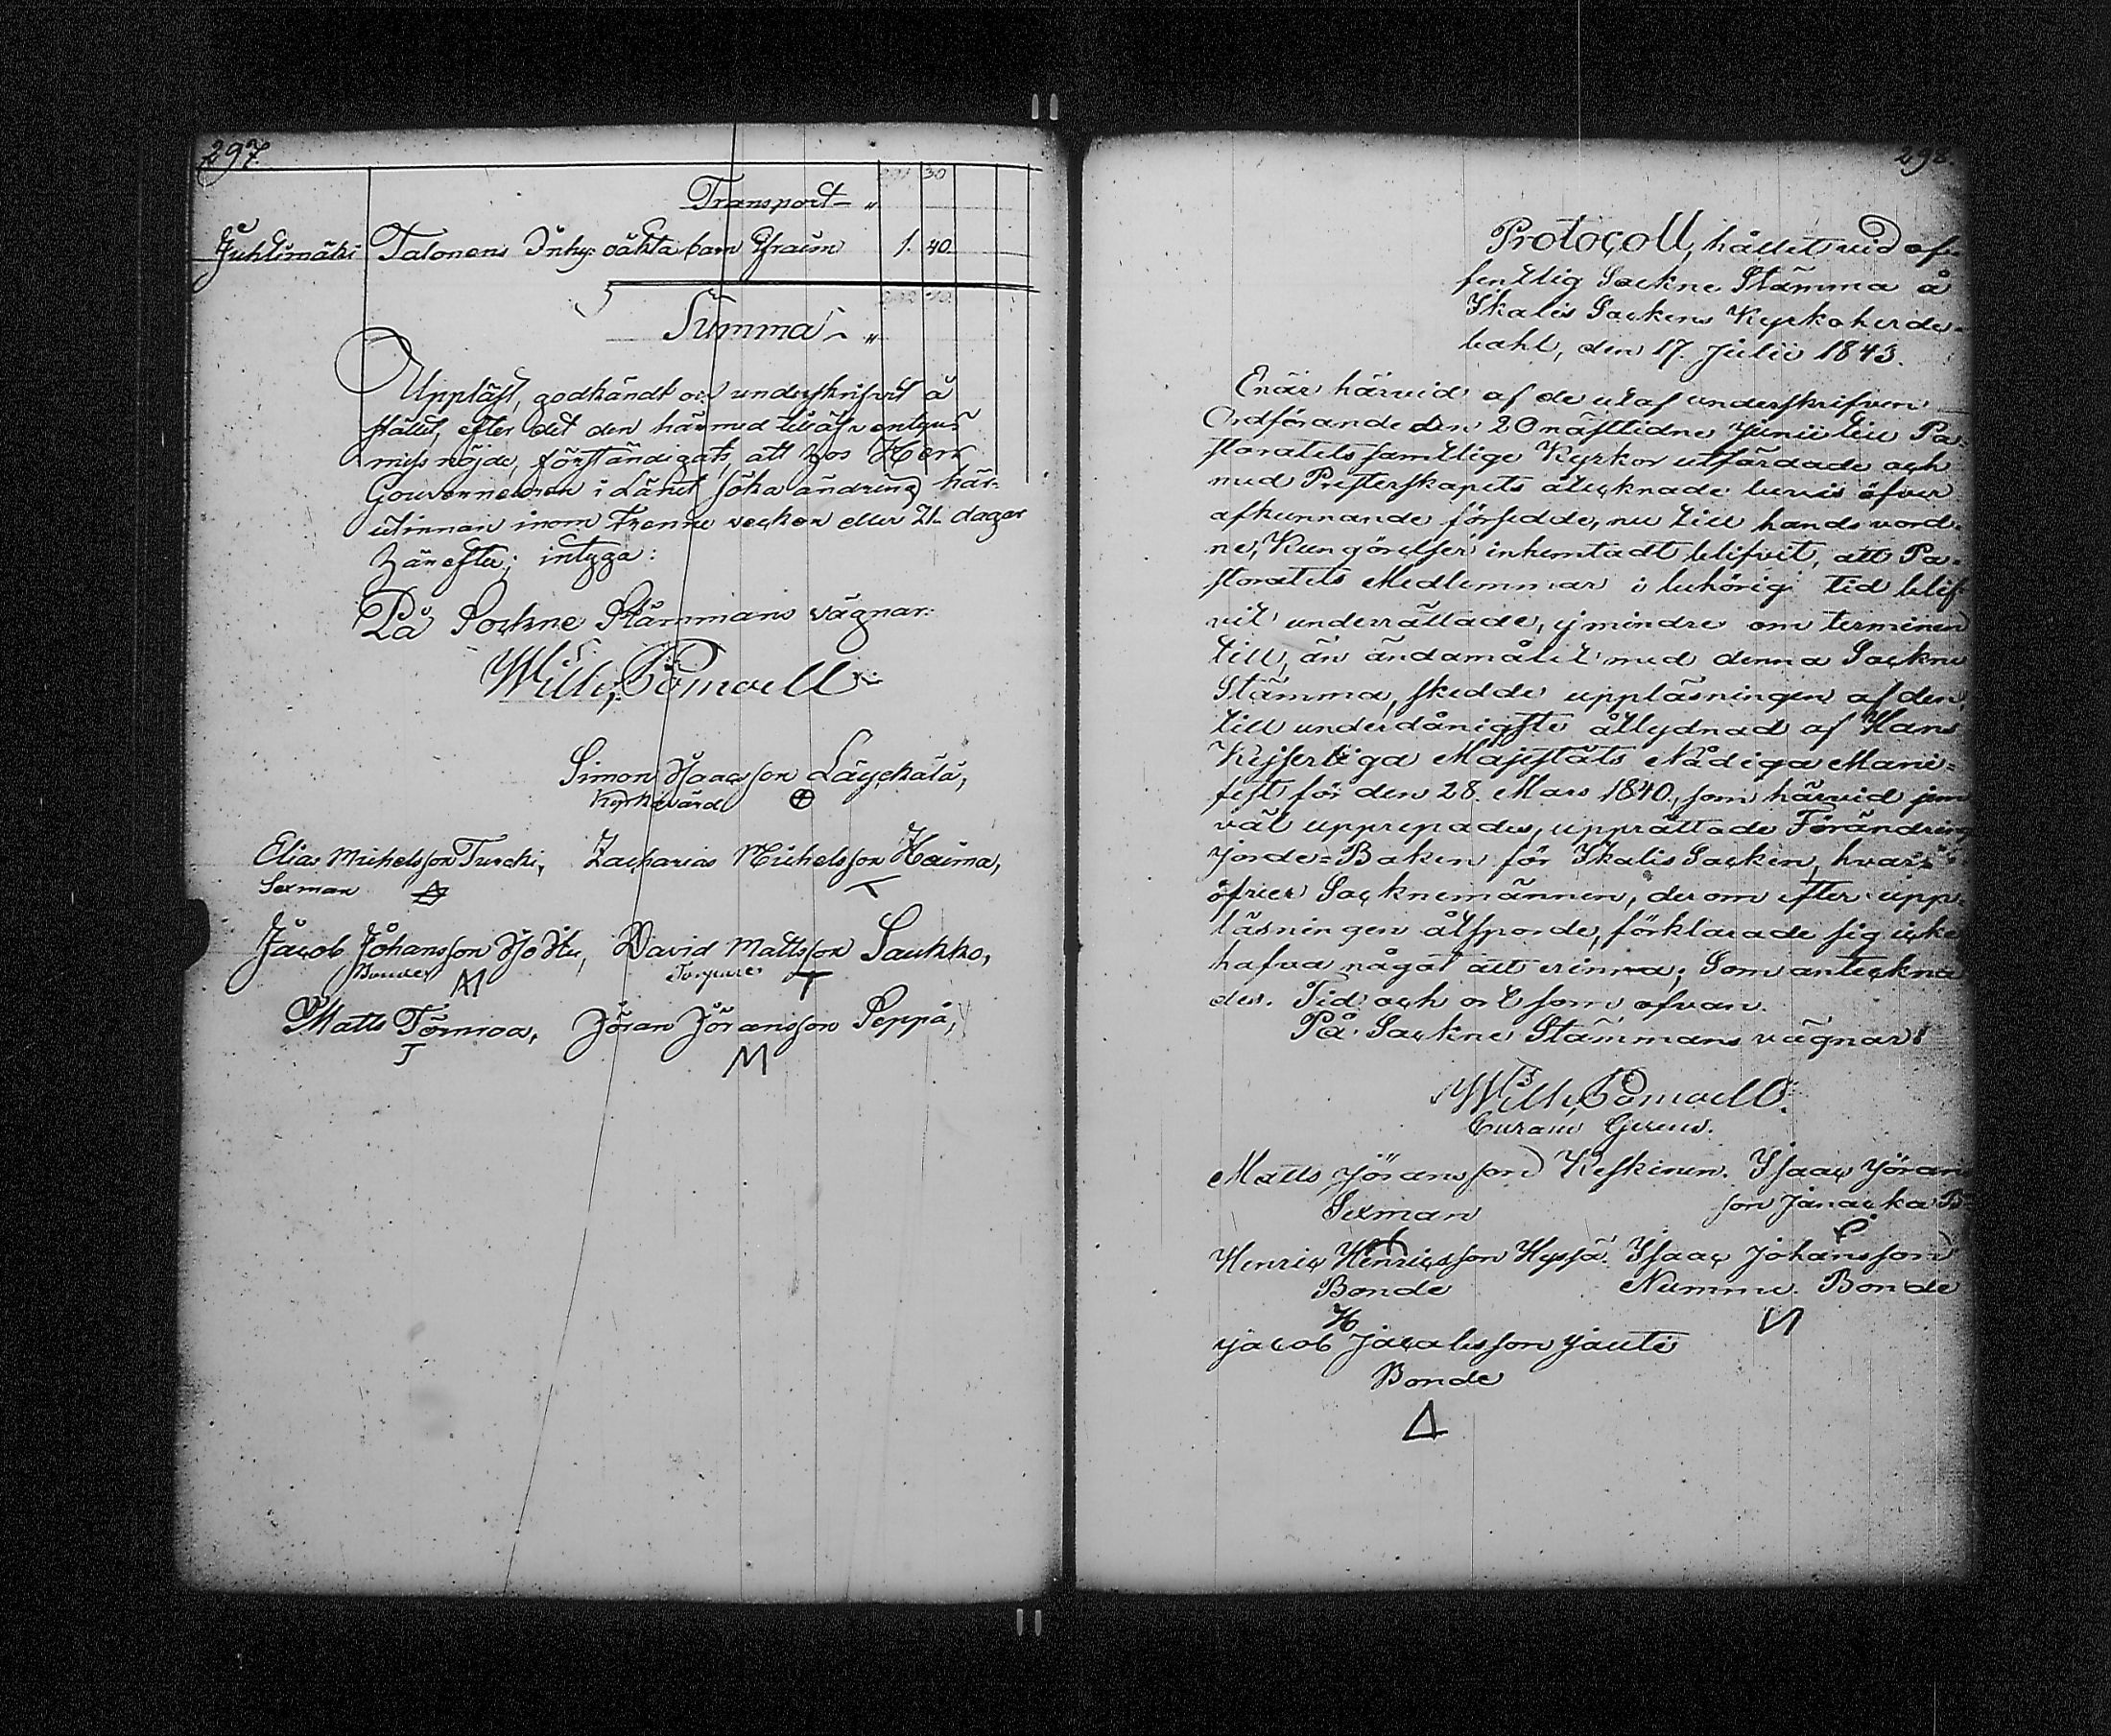 297.
201 30
Transport - "
Juhtimäki Talonens Inhy: oäkta barn Efraim 1. 40.
202 70
Summa - "
Uppläst, godkändt och underskrifvit å
stället, efter det den härmed tilläfventyrs
missnöjde, förständigats, att hos Herr
Gouverneuren i Länet söka ändring här-
utinnan inom Trenne veckor eller 21 dagar
härefter; intyga:
På Sockne Stämmans vägnar:
Wilh. Pomoell
Simon Isaacsson Läyckälä,
Kyrkovärd
Elias Michelsson Turcki, Zacharias Michelsson Haima,
Sexman
Jacob Johansson David Mattsson Saukko,
Bonde M T
Matts Tormoa, Jöran Jöransson Seppä,
T M
298.
Protocoll, hållet vid of-
fentlig Sockne Stämma å
Ikalis Sockens Kyrkoherde-
bohl, den 17. Julii 1843.
Enär härvid af de utaf underskrifven
Ordförande den 20 nästlidne Junii till Pa-
storatets samtlige Kyrkor utfärdade och
med Presterskapets åtecknade bevis öfver
afkunnande försedde, nu till hands vord-
ne, Kungörelser inhemtadt blifvit, att Pa-
storatets Medlemmar i behörig tid blif-
vit underrättade, ej mindre om terminen
till, än ändamålet med denna Sockne
Stämma, skedde uppläsningen af den,
till underdånigste åtlydnad af Hans
Kejserliga Majestäts Nådiga Mani-
fest för den 28. Mars 1840, som härvid jem
väl upprepades, upprättade Förändring
Jorde-Boken för Ikalis Socken, hvar-
öfver Socknemännen, derom efter upp-
läsningen åtsporde, förklarade sig icke
hafva något att erinra; Som anteckna
des. Tid och ort som ofvan.
På Sockne Stämmans vägnar:
Wilh. Pomoell.
Curam Gerens.
Matts Jöransson Keskinen. Isaac Jörans
Sexman son Janacka B
Henric Henricsson Hyssä. Isaac Johansson
Bonde Nummi. Bonde
H
Jacob Jacobsson Jauti
Bonde